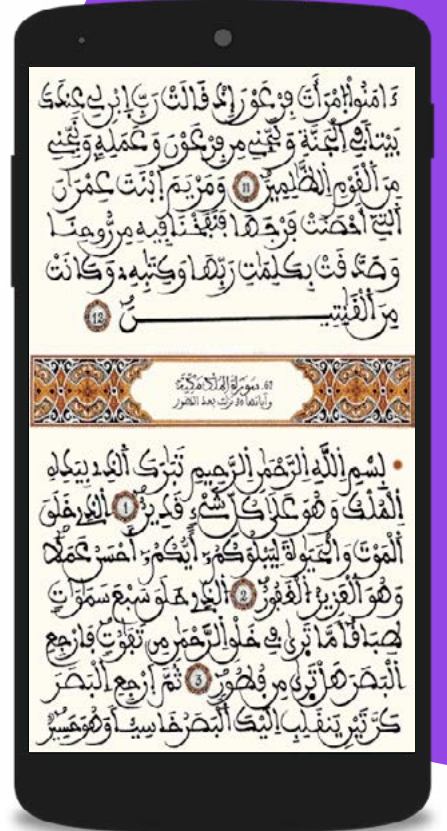 ءَامَنُواْ اِمْرَأَتَ فِرْعَوْنَ إِذْ قَالَتْ رَبِّ اِبْنِ لِے عِندَكَ
بَيْتاٗ فِے اِلْجَنَّةِ وَنَجِّنِے مِن فِرْعَوْنَ وَعَمَلِهِۦ وَنَجِّنِے
مِنَ اَلْقَوْمِ اِلظَّٰلِمِينَ 11 وَمَرْيَمَ اَبْنَتَ عِمْرَٰنَ
اَلتِےٓ أَحْصَنَتْ فَرْجَهَا فَنَفَخْنَا فِيهِ مِن رُّوحِنَا
وَصَدَّقَتْ بِكَلِمَٰتِ رَبِّهَا وَكِتَٰبِهِۦ وَكَانَتْ
مِنَ اَلْقَٰنِتِينَ 12
67. سورة الملك مكية
وآياتها 30 نزلت بعد الطور
بِسْمِ اِللَّهِ اِلرَّحْمَٰنِ اِلرَّحِيمِ تَبَٰرَكَ اَلذِے بِيَدِهِ
اِلْمُلْكُ وَهُوَ عَلَىٰ كُلِّ شَےْءٖ قَدِيرٌ 1 اِلذِے خَلَقَ
اَلْمَوْتَ وَالْحَيَوٰةَ لِيَبْلُوَكُمْ أَيُّكُمْ أَحْسَنُ عَمَلاٗ
وَهُوَ اَلْعَزِيزُ اُلْغَفُورُ 2 اُلذِے خَلَقَ سَبْعَ سَمَٰوَٰتٖ
طِبَاقاٗ مَّا تَر۪ىٰ فِے خَلْقِ اِلرَّحْمَٰنِ مِن تَفَٰوُتٖ فَارْجِعِ
اِلْبَصَرَ هَلْ تَر۪ىٰ مِن فُطُورٖ 3 ثُمَّ اَرْجِعِ اِلْبَصَرَ
كَرَّتَيْنِ يَنقَلِبِ اِلَيْكَ اَلْبَصَرُ خَاسِئاٗ وَهُوَ حَسِيرٌ